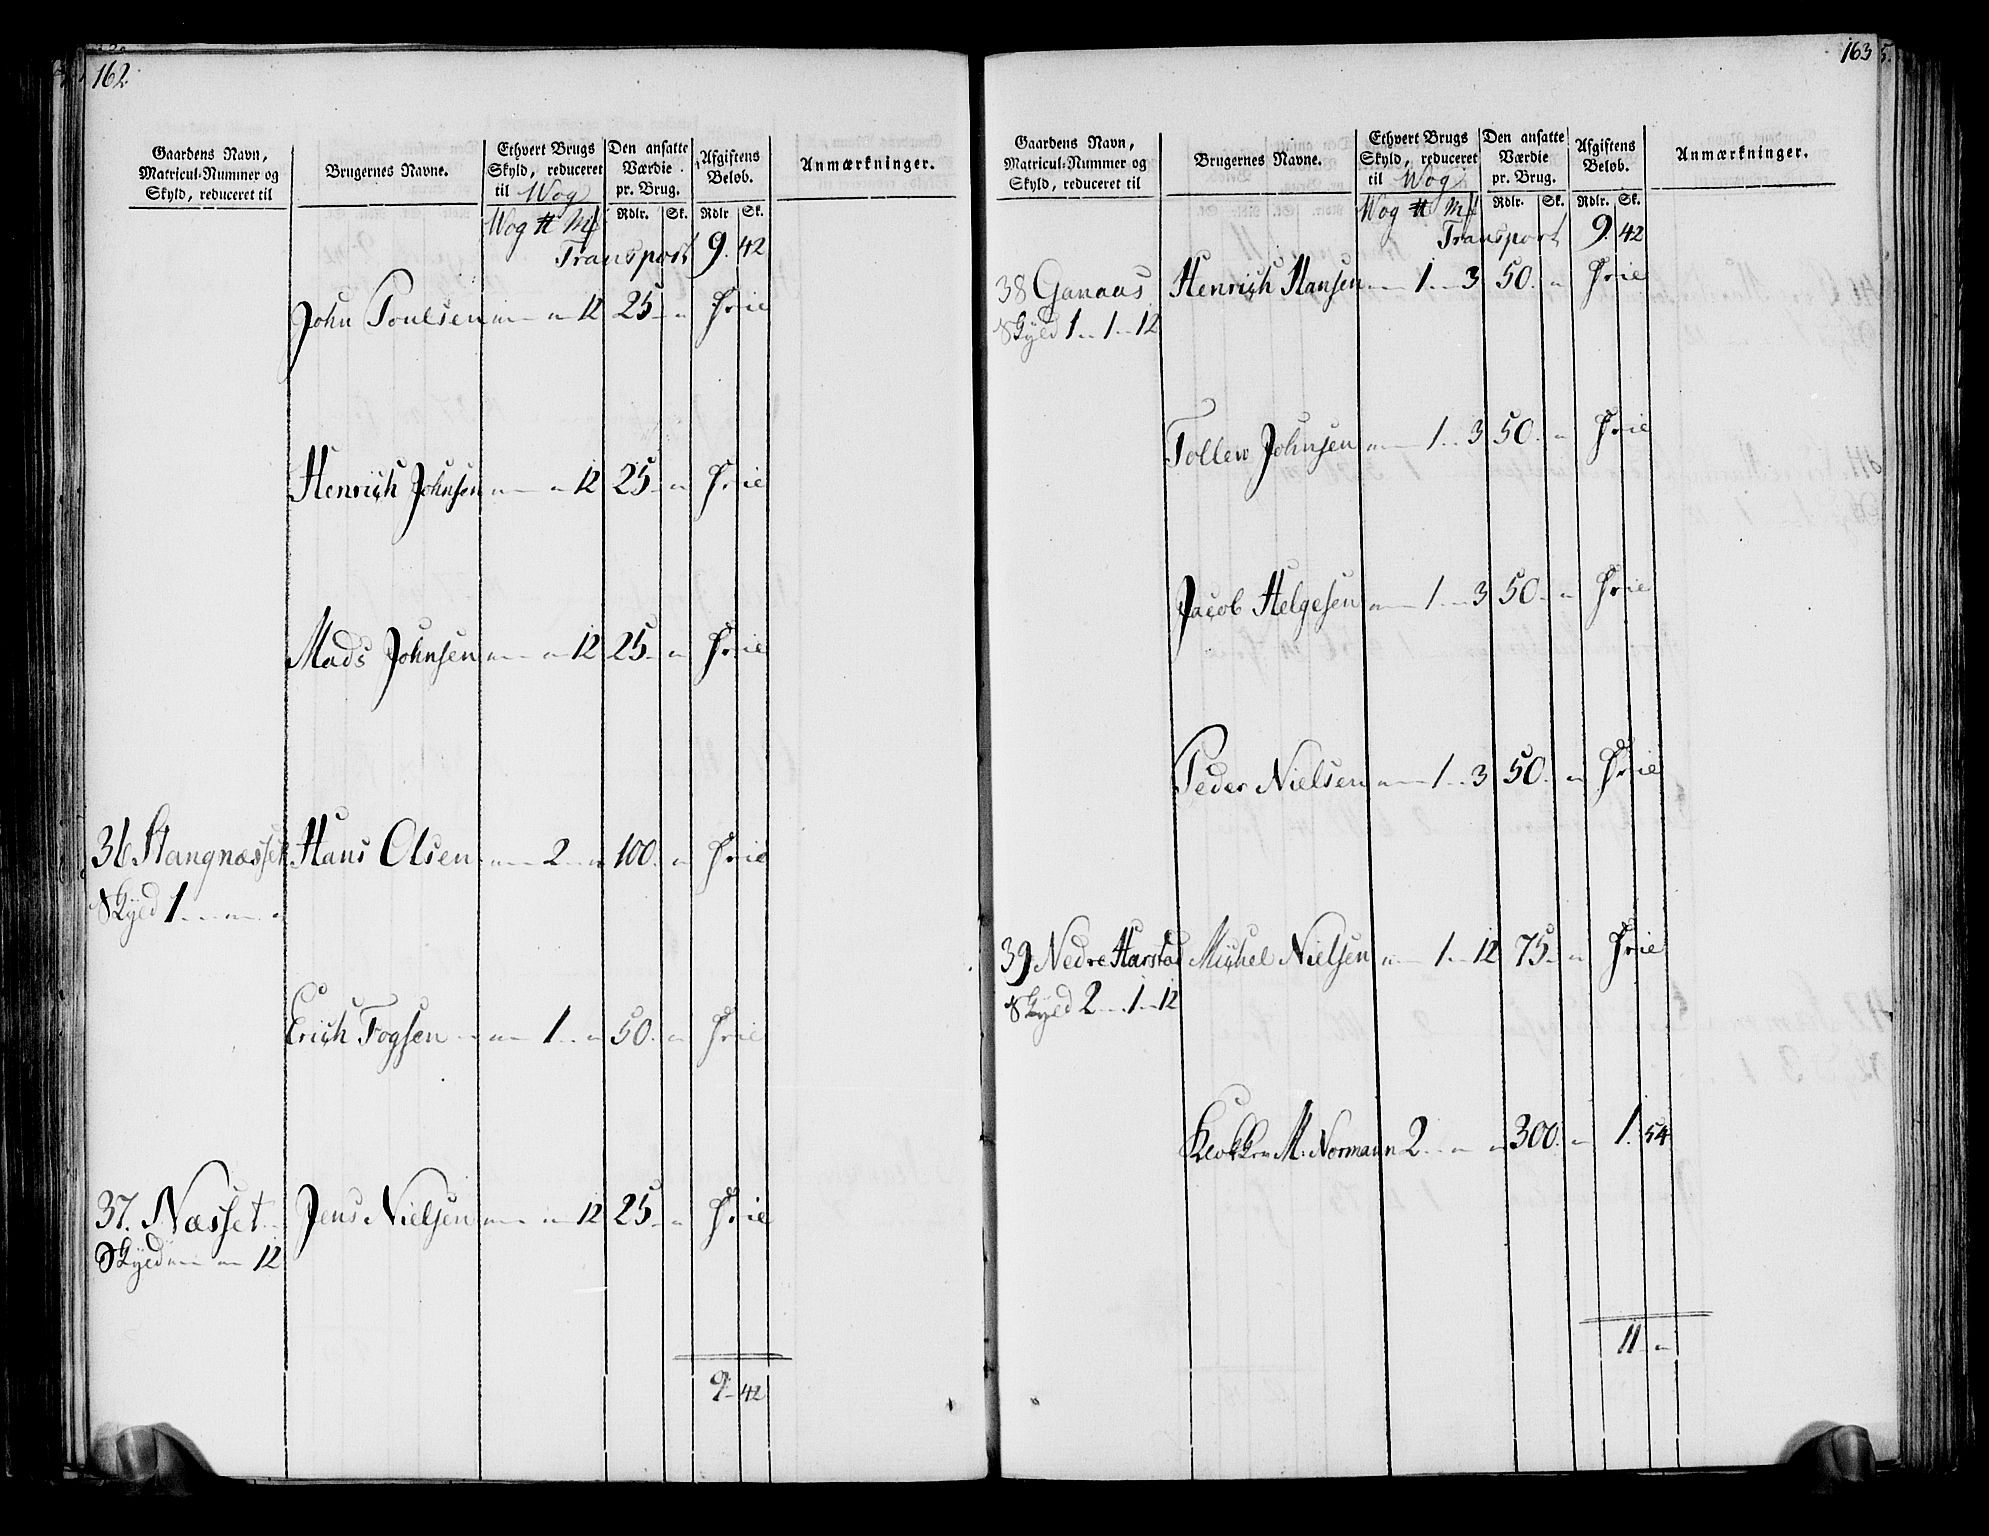 162.
Gaardens Navn, Matricul-Nummer og Skyld, reduceret til | Brugernes Navne. | Ethvert Brugs Skyld, reduceret til Wog | Den ansatte Værdie pr. Brug. | Afgiftens Beløb. | Anmærkninger.
Wog ℔ Mk | Rdlr. Sk. | Rdlr Sk.
Transport 9. 42
John Poulsen " — " 12 25 — " Frie
Henrich Johnsen " — " 12 25 — " Frie
Mads Johnsen " — " 12 25 — " Frie
36 Stangnæsset Hans Olsen " — 2 — " 100. " Frie
Skyld 1 — " — "
Erich Fogsen " — 1 — " 50. " Frie
37. Næsset Jens Nielsen " — " 12 25 — " Frie
Skyld " — " 12
9 — 42
163
Gaardens Navn, Matricul-Nummer og Skyld, reduceret til | Brugernes Navne. | Ethvert Brugs Skyld, reduceret til Wog | Den ansatte Værdie pr. Brug. | Afgiftens Beløb. | Anmærkninger.
Wog ℔ Mk | Rdlr. Sk. | Rdlr. Sk.
Transport 9. 42
38 Ganaas Henrich Hansen " — 1 — 3 50. " Frie
Skyld 1 — 1 — 12
Tollew Johnsen " — 1 — 3 50. " Frie
Jacob Helgesen " — 1 — 3 50. " Frie
Peder Nielsen " — 1 — 3 50. " Frie
39 Nedre Harstad Michel Nielsen " — 1 — 12 75 — " Frie
Skyld 2 — 1 — 12
Klokker M. Normann 2 — " — " 300. " 1. 54
11 — "